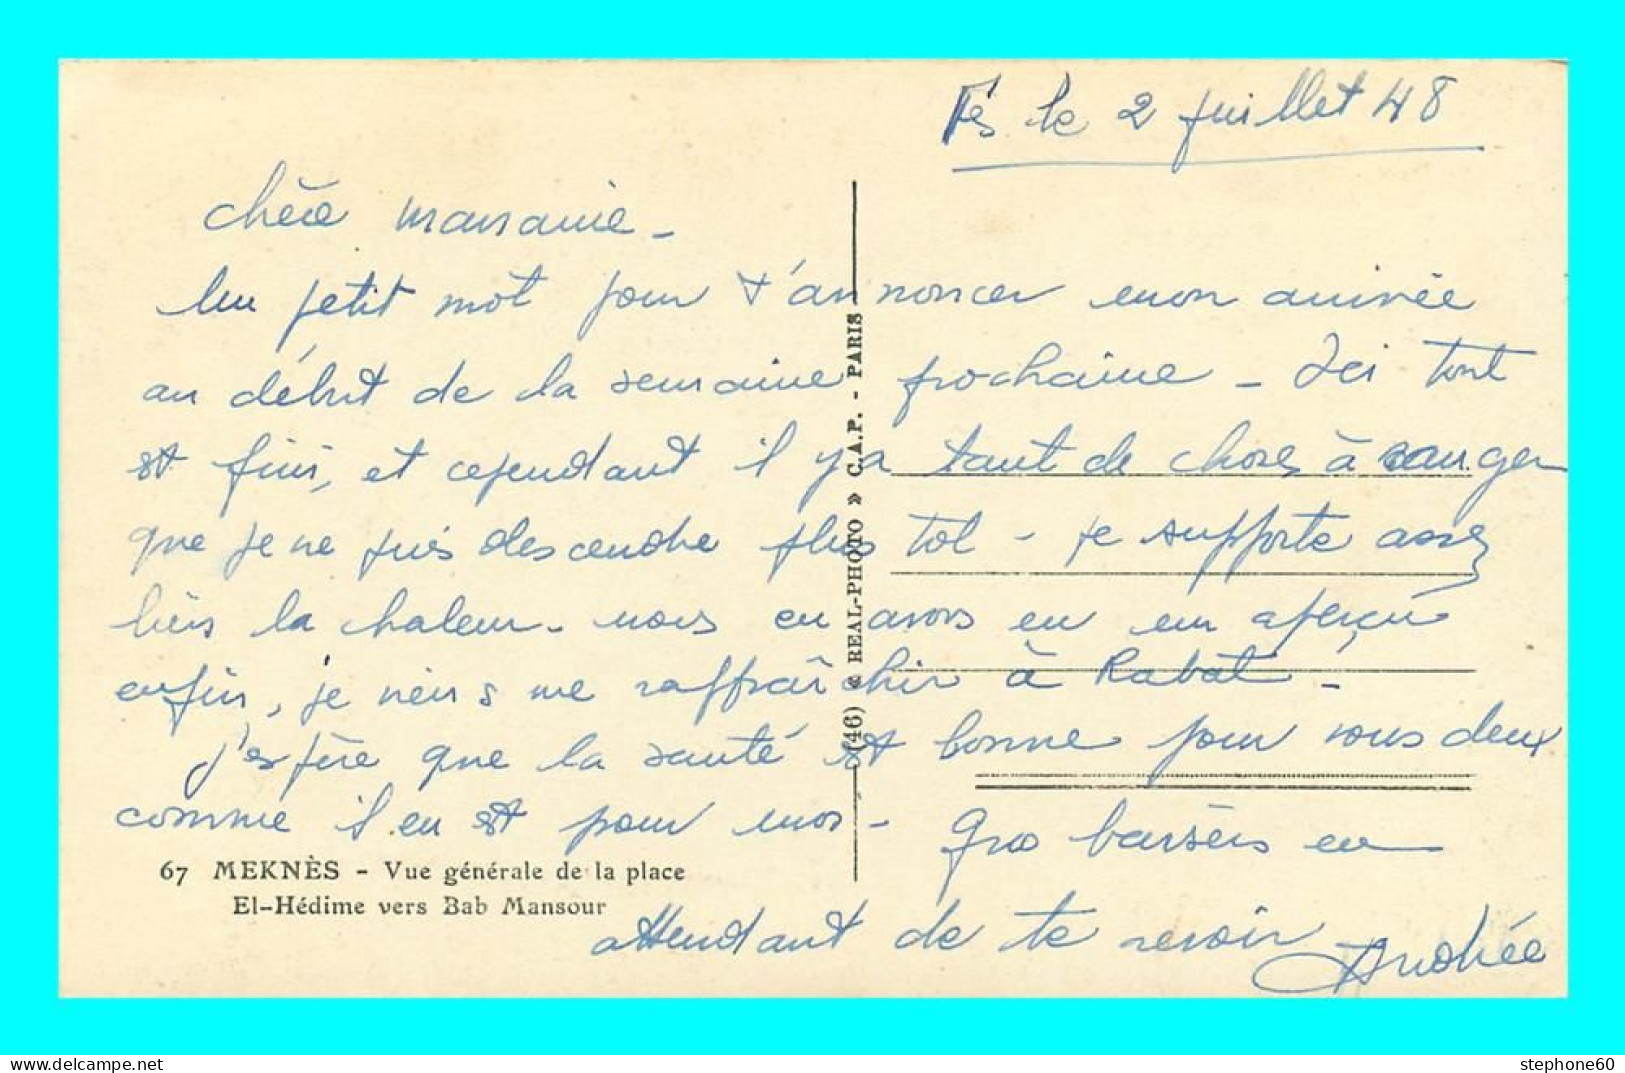 Fès le 2 juillet 48
Chère marraine -
Un petit mot pour t'annoncer mon arrivée
au début de la semaine prochaine - Ici tout
est fini, et cependant il y a tant de choses à ranger
que je ne puis descendre plus tôt - je supporte assez
bien la chaleur - nous en avons eu un aperçu
enfin, je viens me raffraîchir à Rabat -
j'espère que la santé est bonne pour vous deux
comme il en est pour moi - Gros baisers en
attendant de te revoir
Andrée
67 MEKNÈS - Vue générale de la place
El-Hédime vers Bab Mansour
(46) « REAL-PHOTO » C.A.P. - PARIS
delcampe.net
stephone60